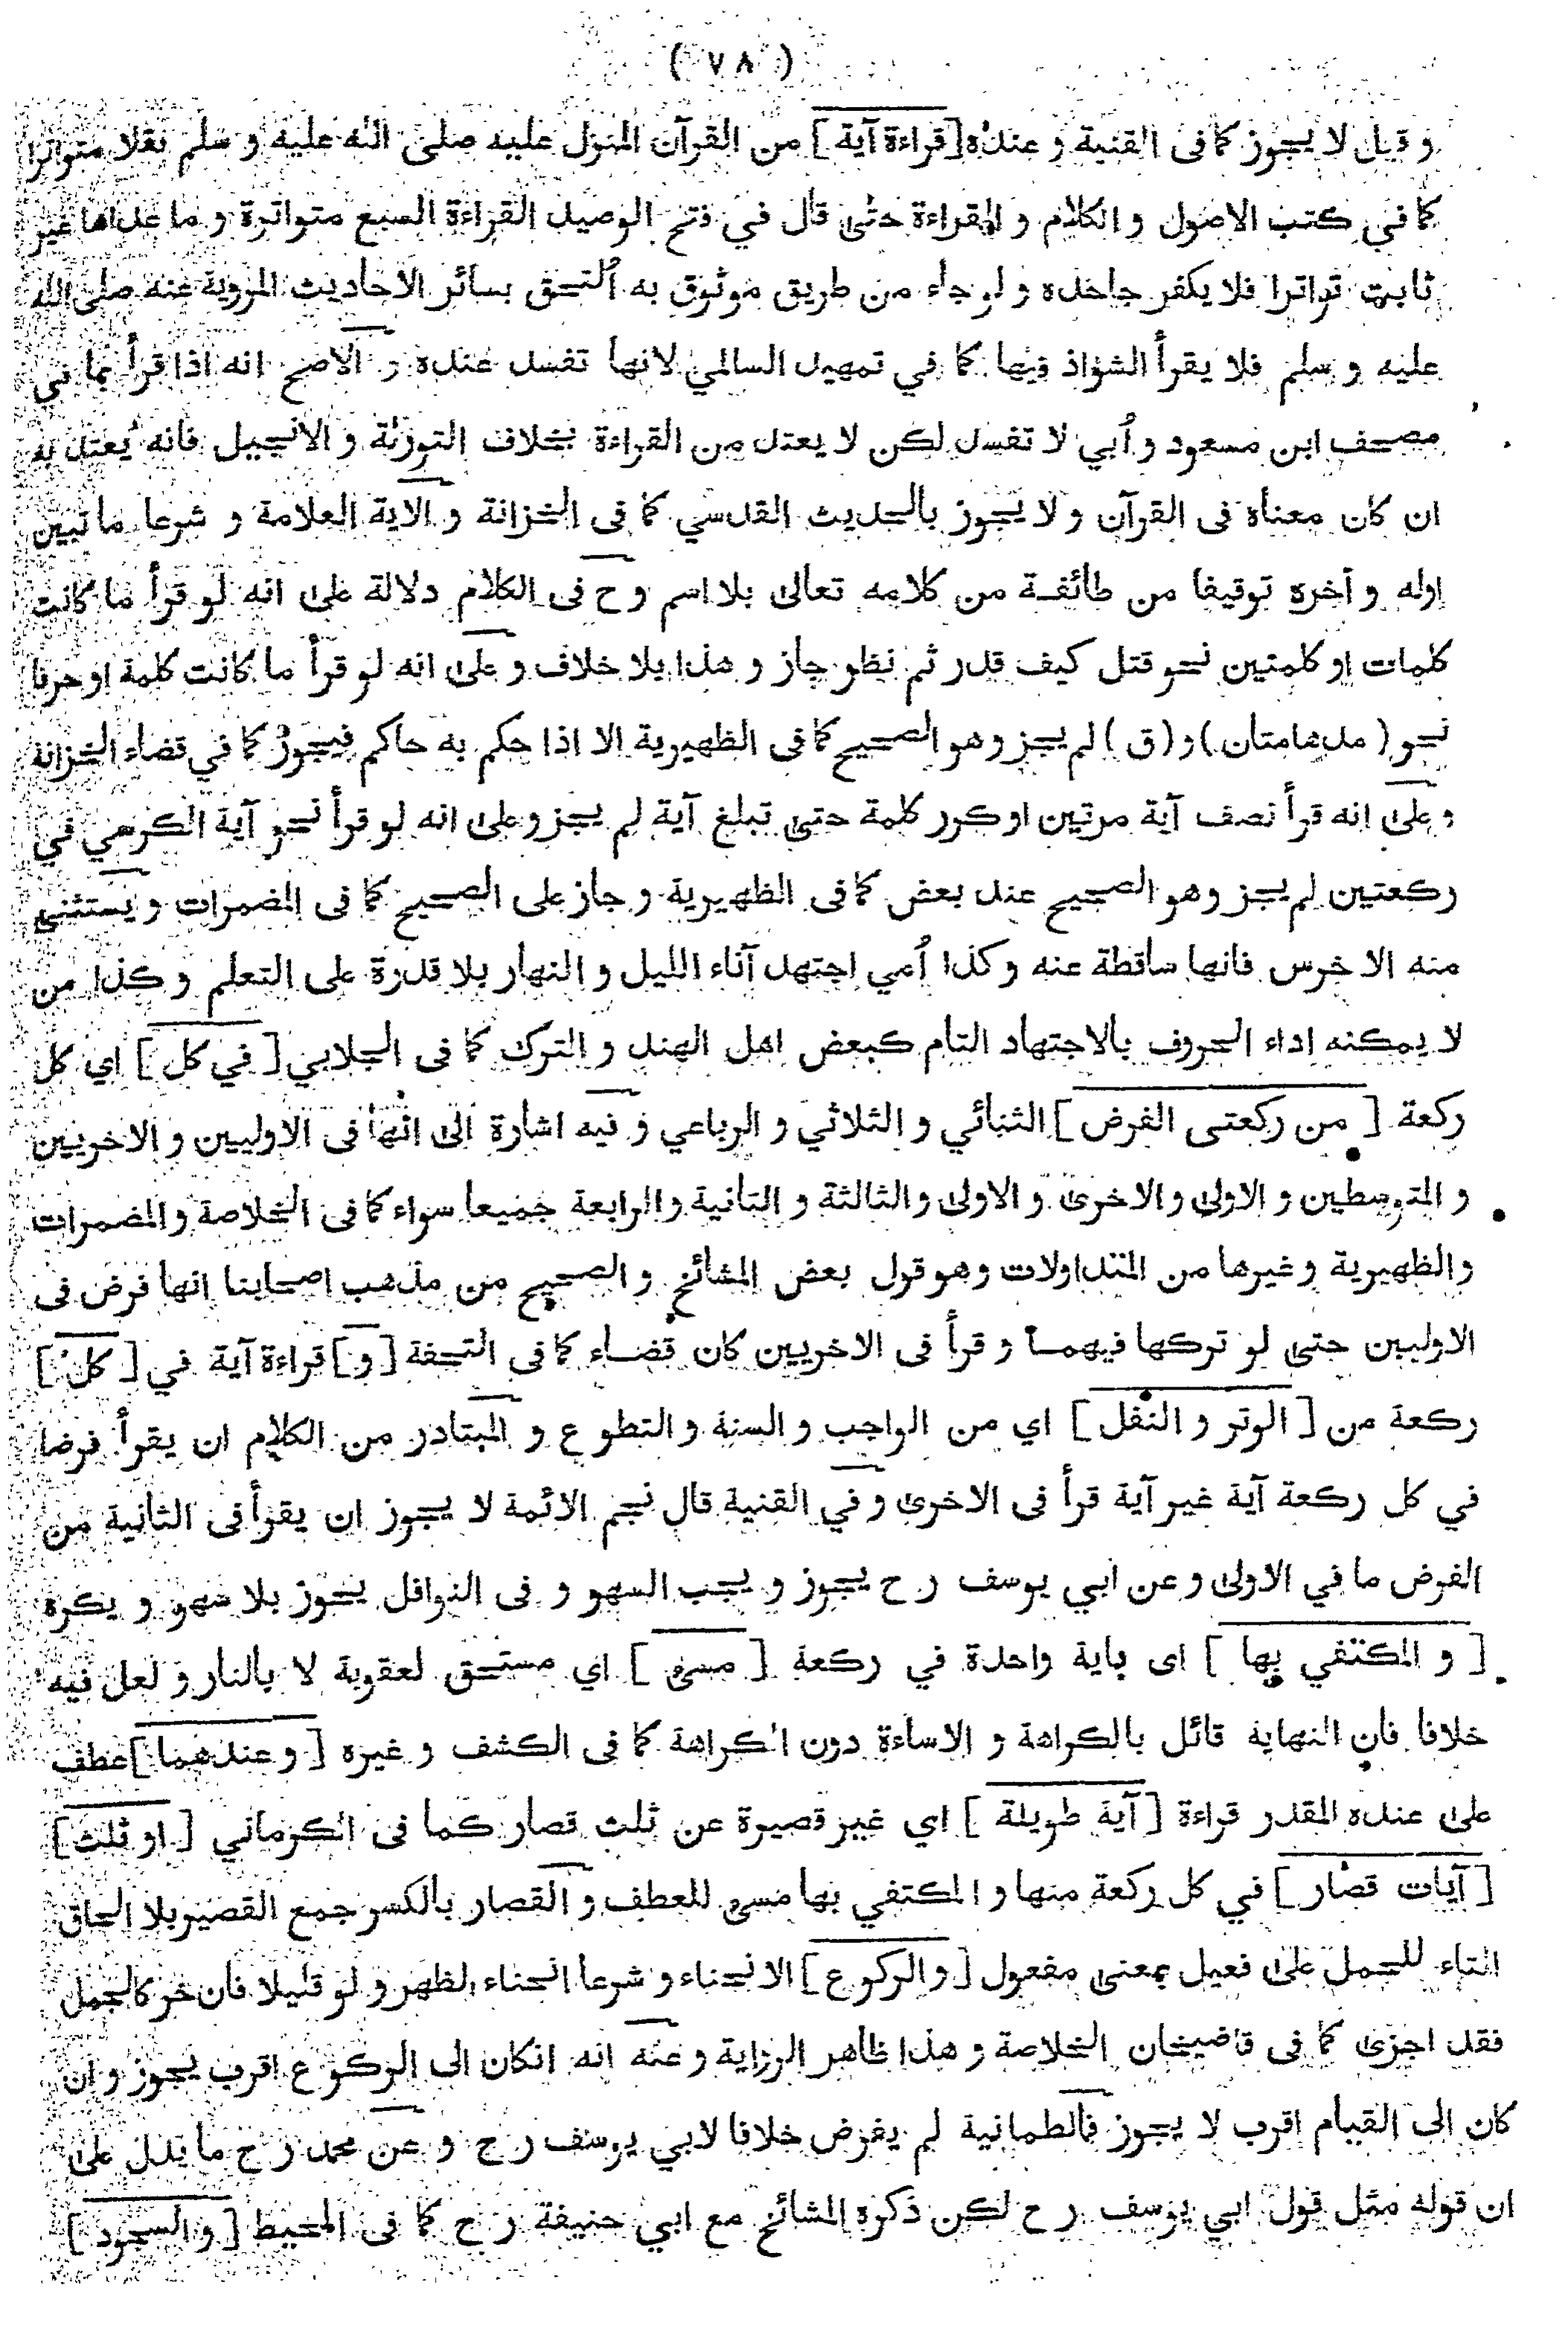 ( ٧٨ )
و قيل لا يجوز كما فى القنية و عنده [ قراءة آية ] من القرآن المنزل عليه صلى الله عليه و سلم نقلا متواترا
كما في كتب الاصول و الكلام و القراءة حتى قال في فتح الوصيد القراءة السبع متواترة و ما عداها غير
ثابت تواترا فلا يكفر جاحده و لو جاء من طريق موثوق به اُلتحق بسائر الاحاديث المروية عنه صلى الله
عليه و سلم فلا يقرأ الشواذ فيها كما في تمهيد السالمي لانها تفسد عنده و الاصح انه اذا قرأ بما في
مصحف ابن مسعود و أُبي لا تفسد لكن لا يعتد من القراءة بخلاف التورٰىة و الانجيل فانه يعتد به
ان كان معناه فى القرآن و لا يجوز بالحديث القدسي كما فى الخزانة و الاية العلامة و شرعا ما تبين
اوله و آخره توقيفا من طائفة من كلامه تعالى بلا اسم و ح فى الكلام دلالة على انه لو قرأ ما كانت
كلمات او كلمتين نحو قتل كيف قدر ثم نظر جاز و هذا بلا خلاف و على انه لو قرأ ما كانت كلمة او حرفا
نحو ( مدهامتان ) و ( ق ) لم يجز و هو الصحيح كما فى الظهيرية الا اذا حكم به حاكم فيجوز كما في قضاء الخزانة
و على انه قرأ نصف آية مرتين او كرر كلمة حتى تبلغ آية لم يجز و على انه لو قرأ نحو آية الكرسي في
ركعتين لم يجز و هو الصحيح عند بعض كما فى الظهيرية و جاز على الصحيح كما فى المضمرات و يستثنى
منه الاخرس فانها ساقطة عنه و كذا اُمي اجتهد آناء الليل و النهار بلا قدرة على التعلم و كذا من
لا يمكنه اداء الحروف بالاجتهاد التام كبعض اهل الهند و الترك كما فى الجلابي [ في كل ] اي كل
ركعة [ من ركعتى الفرض ] الثنائي و الثلاثي و الرباعي و فيه اشارة الى انها فى الاوليين و الاخريين
و المتوسطين و الاولى و الاخرى و الاولى و الثالثة و الثانية و الرابعة جميعا سواء كما فى الخلاصة و المضمرات
و الظهيرية و غيرها من المتداولات و هو قول بعض المشائخ و الصحيح من مذهب اصحابنا انها فرض فى
الاوليين حتى لو تركها فيهما و قرأ فى الاخريين كان قضاء كما فى التحفة [ و ] قراءة آية في [ كل ]
ركعة من [ الوتر و النفل ] اي من الواجب و السنة و التطوع و المتبادر من الكلام ان يقرأ فرضا
في كل ركعة آية غير آية قرأ فى الاخرى و في القنية قال نجم الائمة لا يجوز ان يقرأ فى الثانية من
الفرض ما في الاولى و عن ابي يوسف ر ح يجوز و يجب السهو و فى النوافل يجوز بلا سهو و يكره
[ و المكتفي بها ] اى باية واحدة في ركعة [ مسىء ] اي مستحق لعقوبة لا بالنار و لعل فيه
خلافا فان النهاية قائل بالكراهة و الاساءة دون الكراهة كما فى الكشف و غيره [ و عندهما ] عطف
على عنده المقدر قراءة [ آية طويلة ] اي غير قصيرة عن ثلث قصار كما فى الكرماني [ او ثلث ]
[ آيات قصار ] في كل ركعة منها و المكتفي بها مسىء للعطف و القصار بالكسر جمع القصير بلا الحاق
التاء للحمل على فعيل بمعنى مفعول [ و الركوع ] الانحناء و شرعا انحناء الظهر و لو قليلا فان خر كالجمل
فقد اجزى كما فى قاضيخان الخلاصة و هذا ظاهر الرواية و عنه انه انكان الى الركوع اقرب يجوز و ان
كان الى القيام اقرب لا يجوز فالطمانية لم يفرض خلافا لابي يوسف ر ح و عن محمد ر ح ما يدل على
ان قوله مثل قول ابي يوسف ر ح لكن ذكره المشائخ مع ابي حنيفة ر ح كما فى المحيط [ و السجود ]